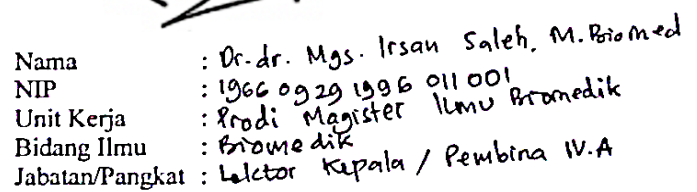 Nama : Dr. dr. Mgs. Irsan Saleh, M. Biomed
NIP : 1966 09 29 1996 011 001
Unit Kerja : Prodi Magister Ilmu Biomedik
Bidang Ilmu : Biomedik
Jabatan/Pangkat : Lektor Kepala / Pembina IV.A